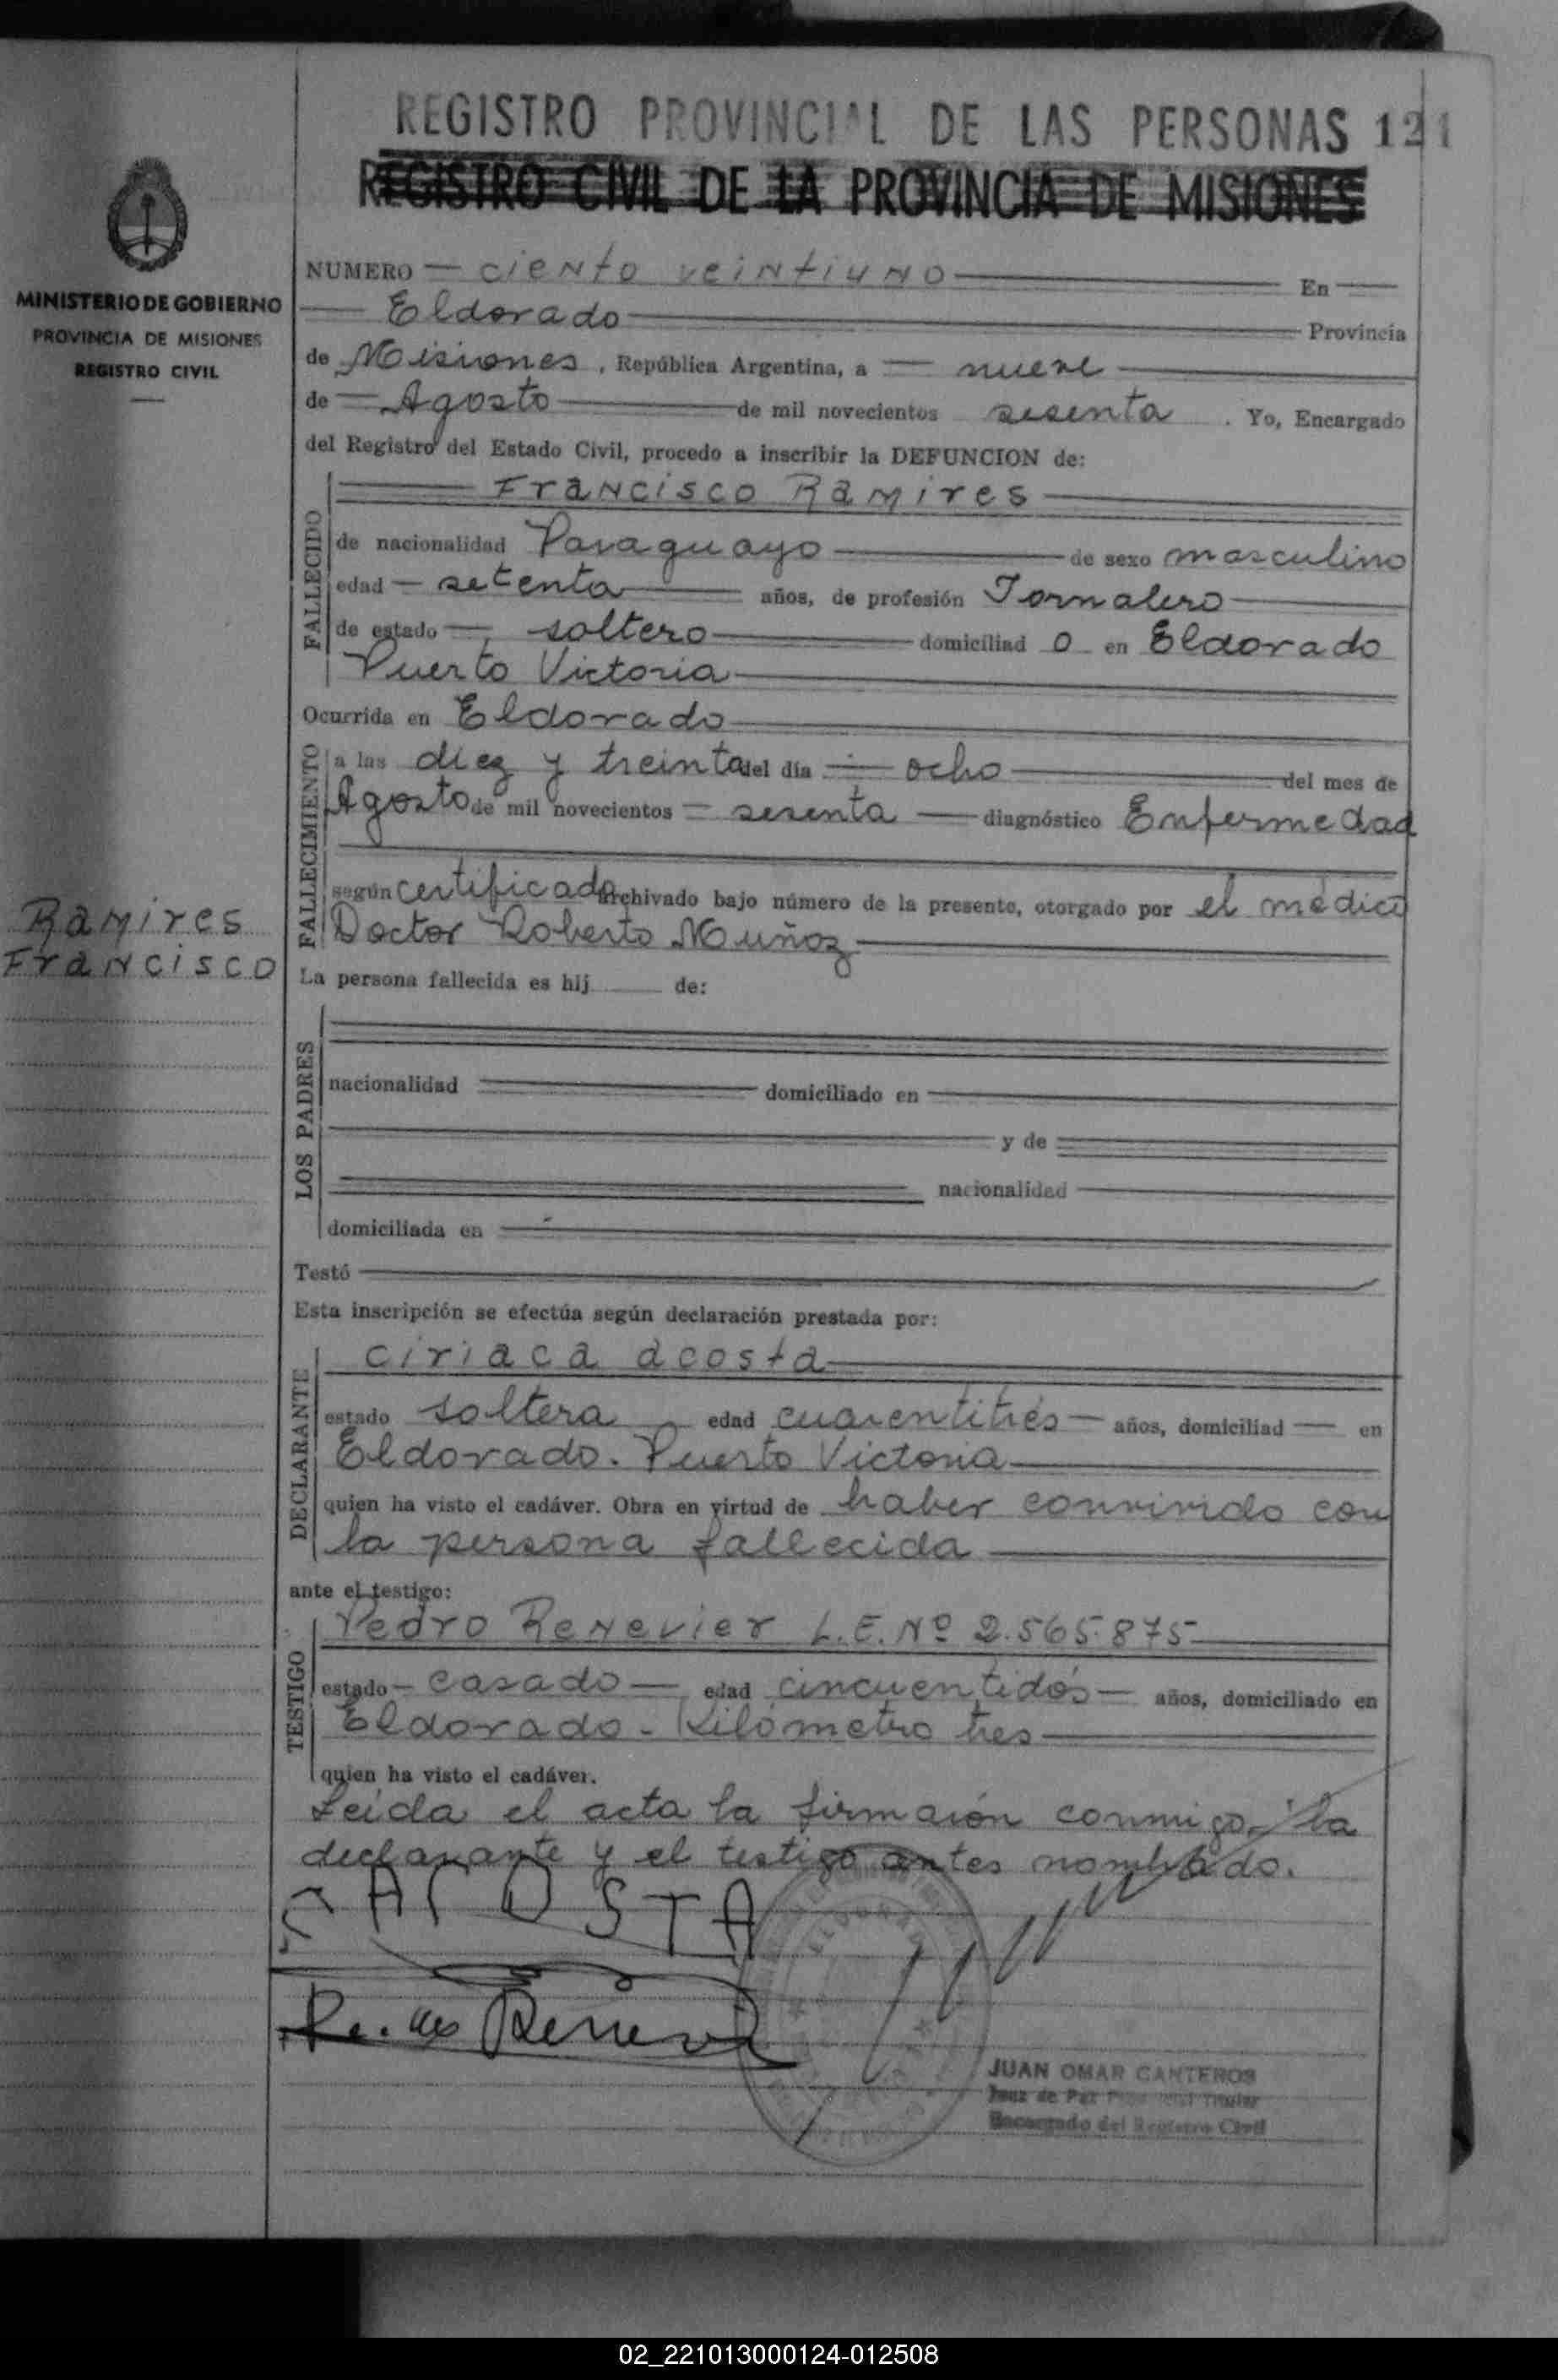 REGISTRO PROVINCIAL DE LAS PERSONAS 121
REGISTRO CIVIL DE LA PROVINCIA DE MISIONES
MINISTERIO DE GOBIERNO
PROVINCIA DE MISIONES
REGISTRO CIVIL
NUMERO — ciento veintiuno — En —
— Eldorado — Provincia
de Misiones, República Argentina, a — nueve —
de — Agosto — de mil novecientos sesenta. Yo, Encargado
del Registro del Estado Civil, procedo a inscribir la DEFUNCION de:
FALLECIDO
Francisco Ramires
de nacionalidad Paraguayo — de sexo masculino
edad — setenta — años, de profesión Jornalero —
de estado — soltero — domiciliad o en Eldorado
Puerto Victoria —
Ocurrida en Eldorado —
FALLECIMIENTO
a las diez y treinta del día — ocho — del mes de
Agosto de mil novecientos — sesenta — diagnóstico Enfermedad
según certificado archivado bajo número de la presente, otorgado por el médico
Doctor Roberto Muñoz —
Ramires
Francisco
La persona fallecida es hij — de:
LOS PADRES
nacionalidad — domiciliado en —
— y de —
— nacionalidad —
domiciliada en —
Testó —
Esta inscripción se efectúa según declaración prestada por:
DECLARANTE
ciriaca acosta —
estado soltera edad cuarentitrés — años, domiciliad — en
Eldorado. Puerto Victoria —
quien ha visto el cadáver. Obra en virtud de haber convivido con
la persona fallecida —
ante el testigo:
TESTIGO
Pedro Renevier L.E. Nº 2.565.875 —
estado — casado — edad cincuentidós — años, domiciliado en
Eldorado - Kilómetro tres —
quien ha visto el cadáver.
Leída el acta la firmaron conmigo, la
declarante y el testigo antes nombrado.
C ACOSTA
ELDORADO
JUAN OMAR CANTEROS
Juez de Paz Titular
Encargado del Registro Civil
02_221013000124-012508